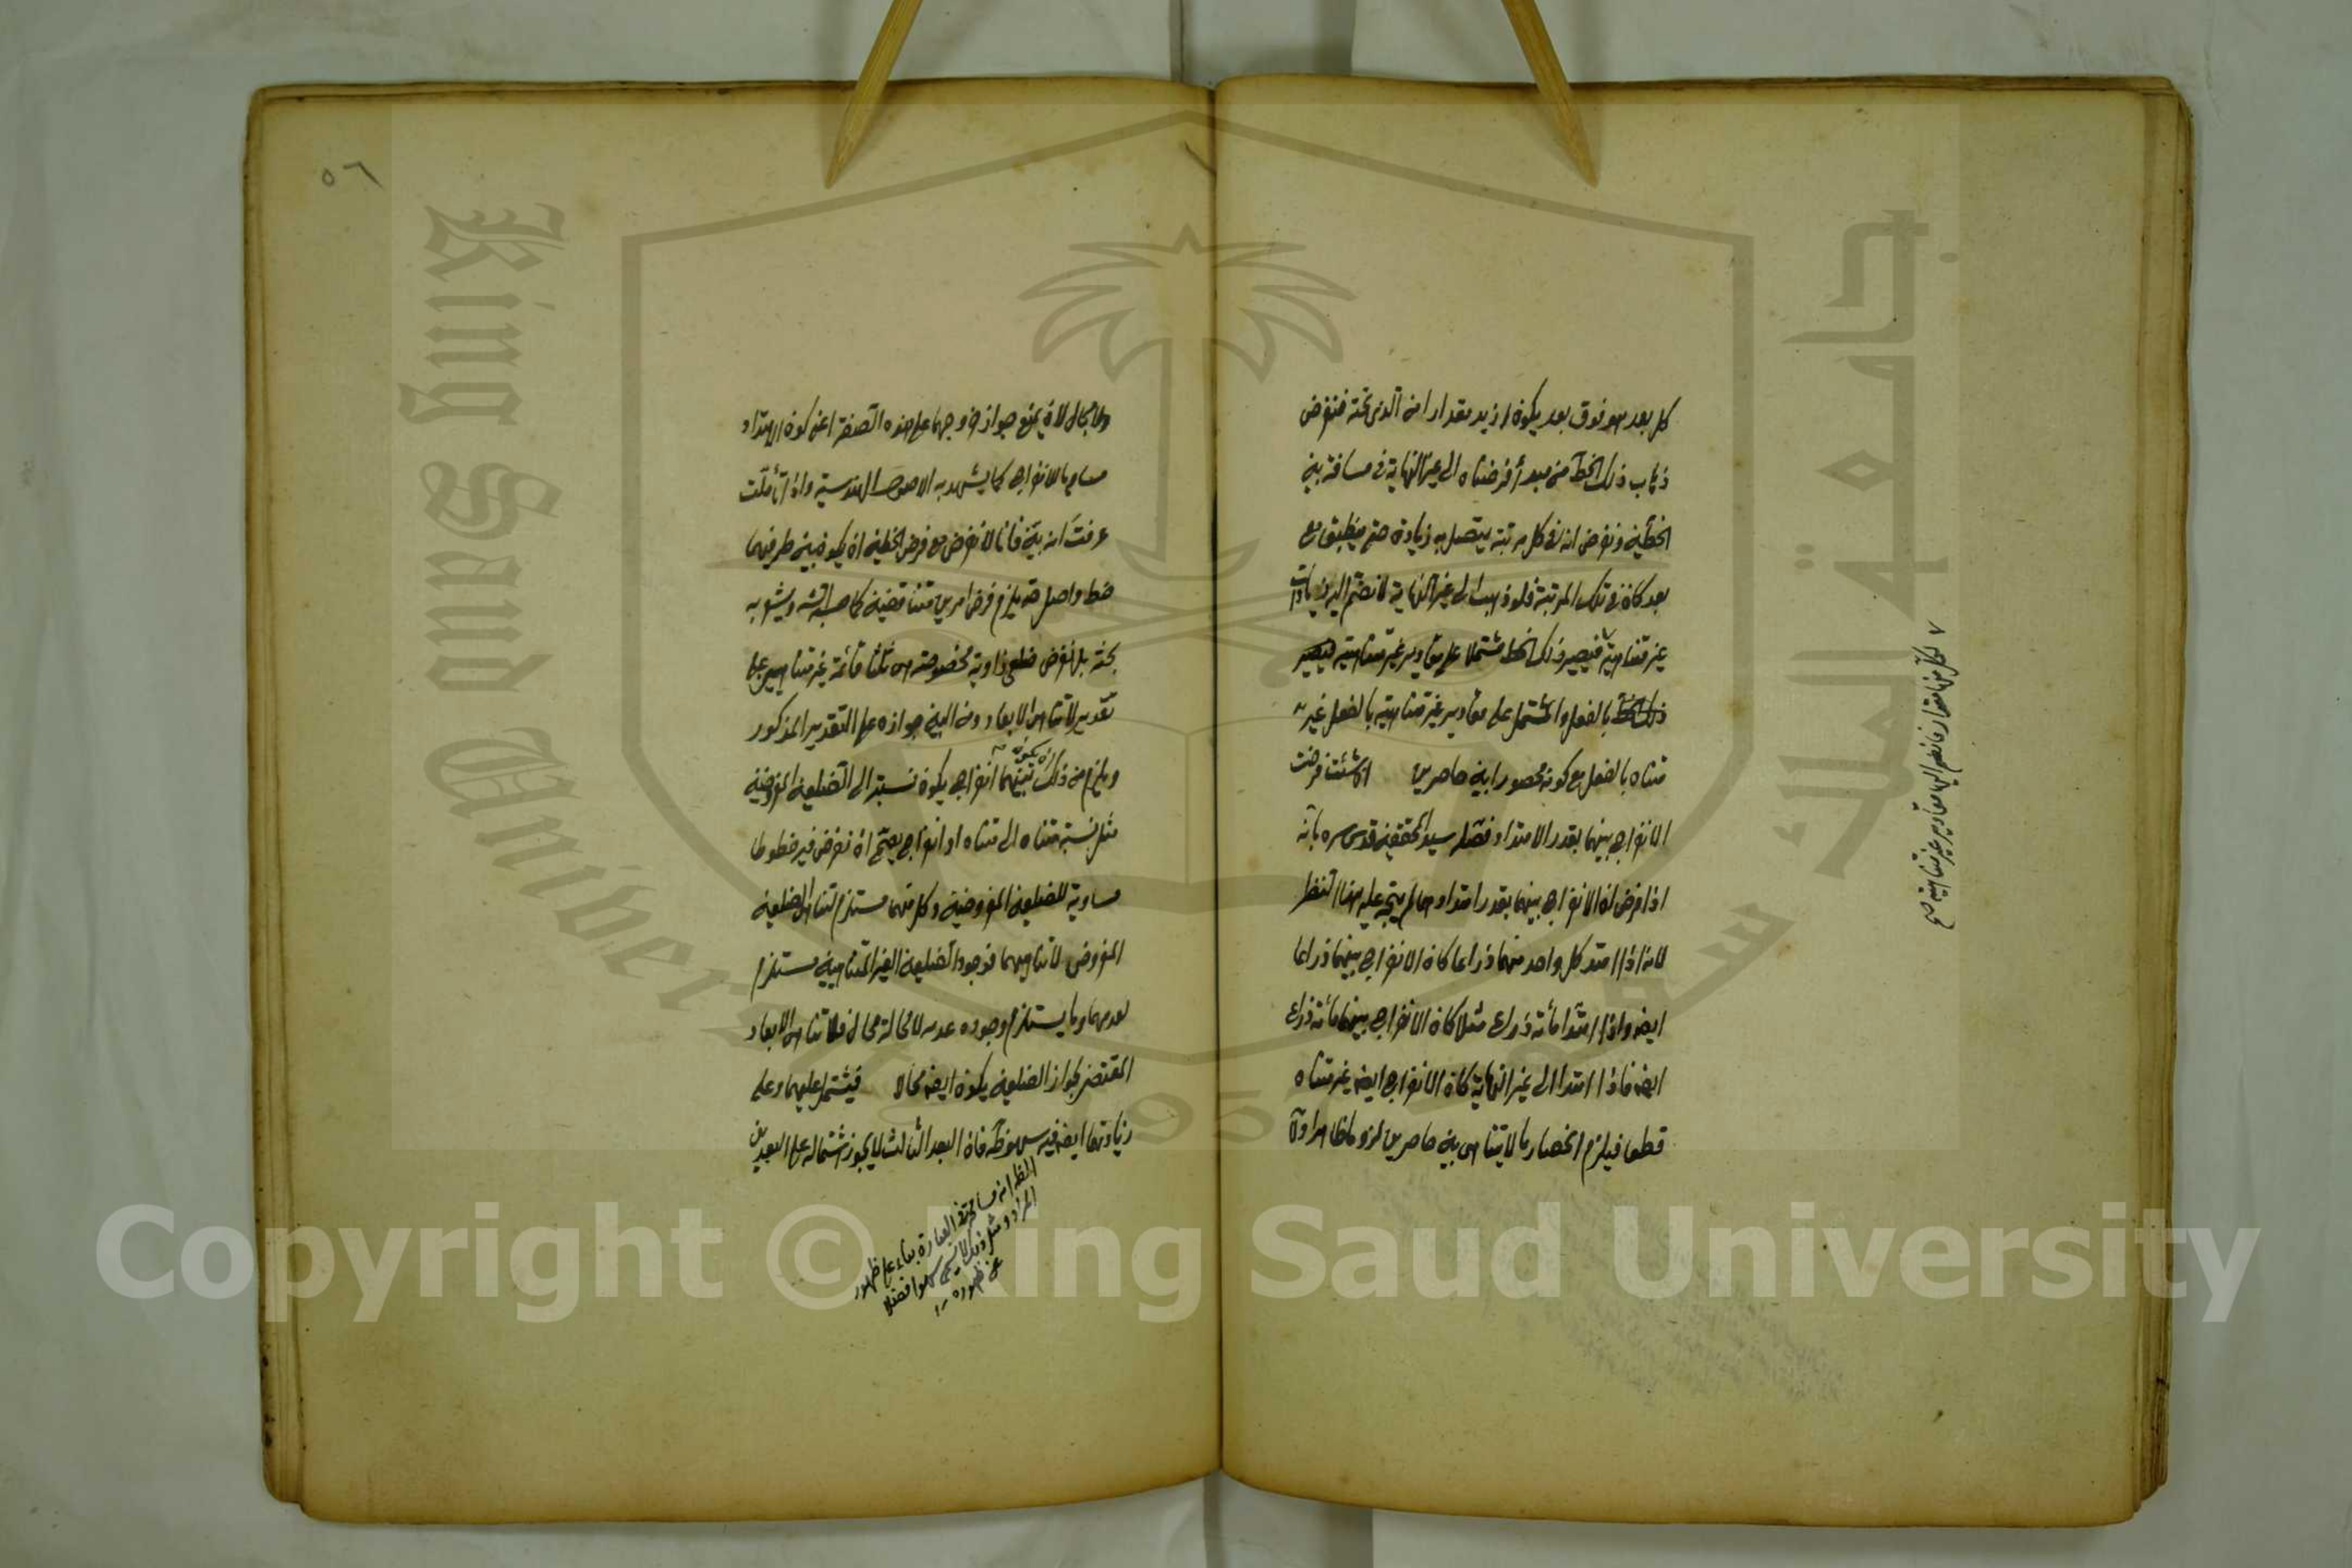 كل بعد هو فوق بعد يكون ازيد مقدارا من الذى تحته فنفرض
ذهاب ذلك الخط من مبدأ فرضناه الى غير النهاية فى مسافة بين
الخطين ونفرض انه فى كل مرتبة يتصل به زيادة حتى ينطبق مع
بعد كان فى تلك المرتبة فلو ذهب الى غير النهاية لانضم اليه زيادات
غير متناهية فيصير ذلك الخط مشتملا على مقادير غير متناهية فيصير
ذلك الخط بالفعل والمشتمل على مقادير غير متناهية بالفعل غير
متناه بالفعل مع كونه محصورا بين حاصرين ان شئت فرضت
الانفراج بينهما بقدر الامتداد فصله سيد المحققين قدس سره بانه
اذا فرض ان الانفراج بينهما بقدر امتدادهما لم يتجه عليه هذا النظر
لانه اذا امتد كل واحد منهما ذراعا كان الانفراج بينهما ذراعا
ايضا واذا امتدا مأته ذراع مثلا كان الانفراج بينهما مأته ذراع
ايضا فاذا امتدا الى غير النهاية كان الانفراج ايضا غير متناه
قطعا فيلزم انحصار ما لا يتناهى بين حاصرين لزوما ظاهرا
لكل منها مقدار فانضم اليها مقادير غير متناهية صح
٥٦
ولا مجال لان يمنع جواز خروجهما على هذه الصفة اعنى كون الامتداد
مساويا للانفراج كما يشهد به الاصول الهندسية واذا تأملت
عرفت انه بين فانا لا نفرض مع فرض الخطين ان يكون بين طرفيهما
خط واصل حتى يلزم فرض امرين متناقضين كما
بحثه بل نفرض ضلعى زاوية مخصوصة هى ثلثا قائمة غير متناهيين على
تقدير لاتناهى الابعاد ومن البين جوازه على التقدير المذكور
ويلزم من ذلك ان يكون بينهما انفراج يكون نسبته الى الضلعين المفروضين
مثل نسبة متناه الى متناه او انفراج يصح ان نفرض فيه خطوطا
مساوية للضلعين المفروضين وكل منهما مستلزم لتناهى الضلعين
المفروض لاتناهيهما فوجود الضلعين الغير المتناهيين مستلزم
لعدمهما وما يستلزم وجوده عدمه لا محالة محال فلاتناهى الابعاد
المقتضى لجواز الضلعين يكون ايضا محالا فيشتمل عليهما وعلى
زيادتهما ايضا فيه سهو ظ فان البعد الثالث لا يجوز اشتماله على البعدين
الظ انه مسامحة فى العبارة بناء على ظهور
المراد ومثل ذلك لا يسمى سهوا فضلا
عن ظهوره
Copyright © King Saud University
King Saud University
جامعة الملك سعود
1957